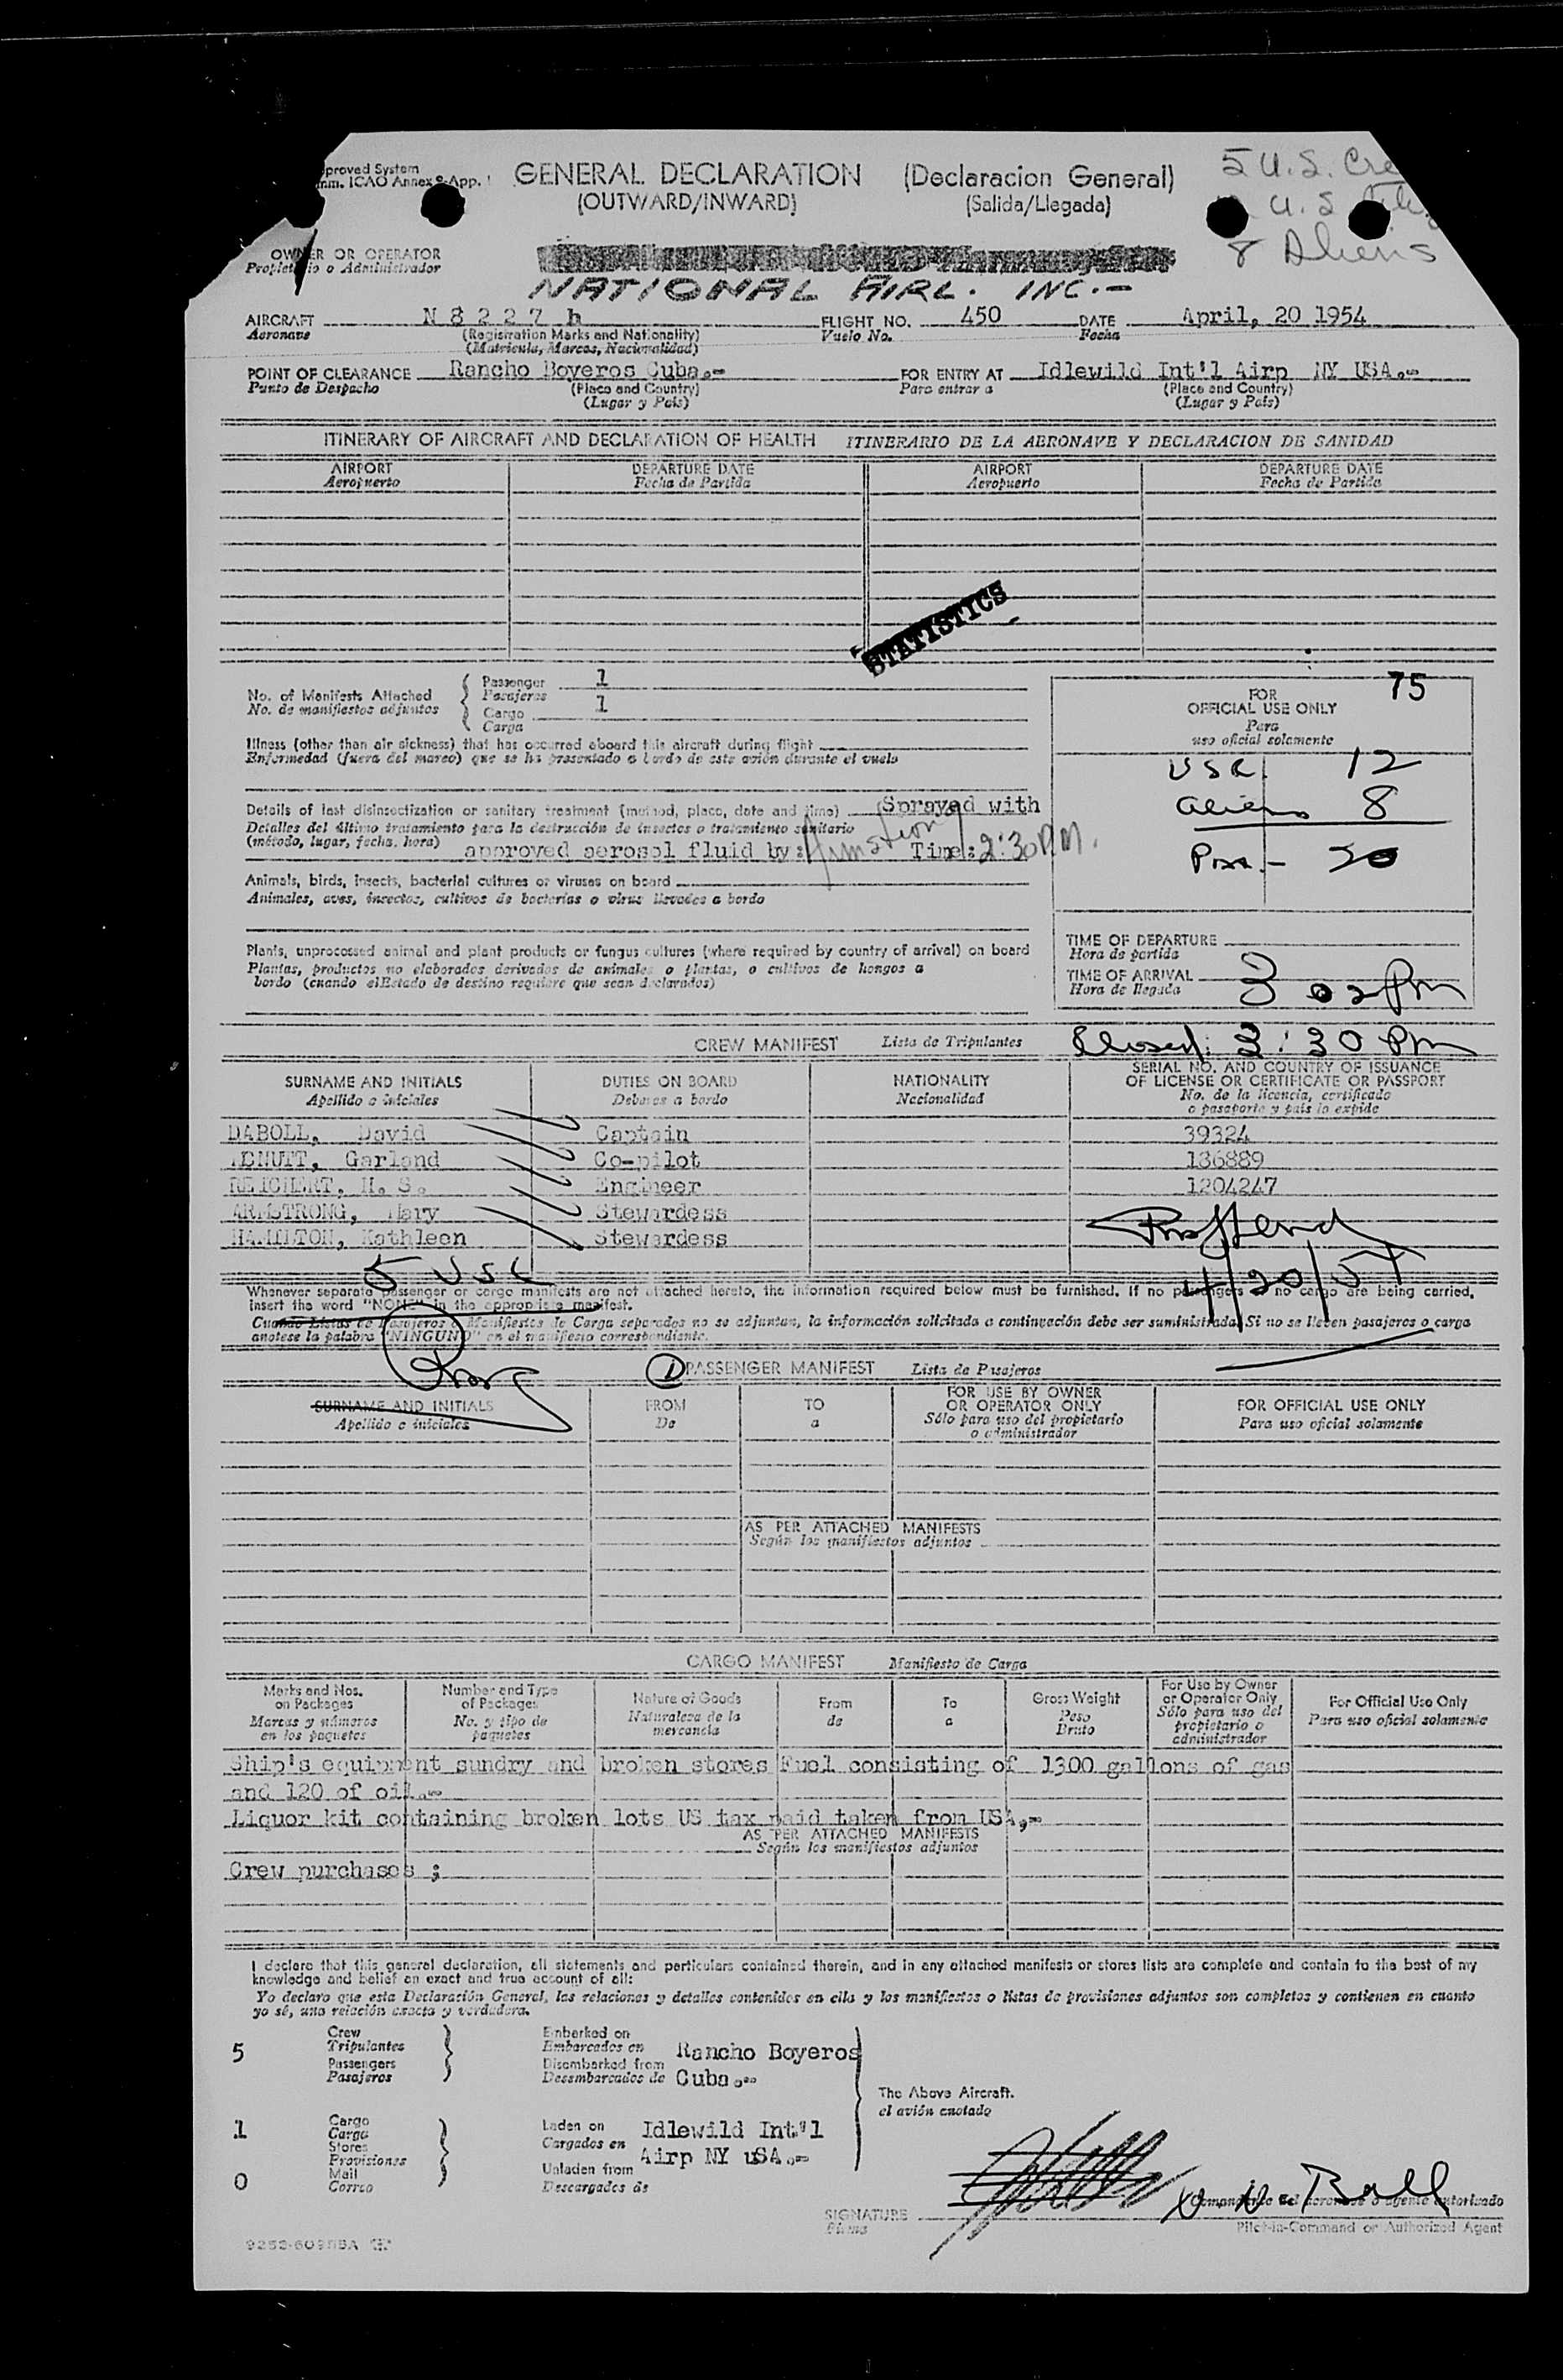 proved System
nm. ICAO Annex 9-App. 1
GENERAL DECLARATION (Declaracion General)
(OUTWARD/INWARD) (Salida/Llegada)
5 U.S. Cre
U.S.
8 Aliens
OWNER OR OPERATOR
Propietario o Administrador
NATIONAL AIRL. INC.-
AIRCRAFT N 8 2 2 7 h FLIGHT NO. 450 DATE April, 20 1954
Aeronave (Registration Marks and Nationality) Vuelo No. Fecha
(Matricula, Marcas, Nacionalidad)
POINT OF CLEARANCE Rancho Boyeros Cuba.- FOR ENTRY AT Idlewild Int'l Airp NY USA.-
Punto de Despacho (Place and Country) Para entrar a (Place and Country)
(Lugar y Pais) (Lugar y Pais)
ITINERARY OF AIRCRAFT AND DECLARATION OF HEALTH ITINERARIO DE LA AERONAVE Y DECLARACION DE SANIDAD
AIRPORT DEPARTURE DATE AIRPORT DEPARTURE DATE
Aeropuerto Fecha de Partida Aeropuerto Fecha de Partida
STATISTICS
No. of Manifests Attached Passenger 1
No. de manifiestos adjuntos Pasajeros
Cargo 1
Carga
75
FOR
OFFICIAL USE ONLY
Para
uso oficial solamente
Illness (other than air sickness) that has occurred aboard this aircraft during flight
Enfermedad (fuera del mareo) que se ha presentado a bordo de este avión durante el vuelo
USC 12
aliens 8
Pass.- 20
Details of last disinsectization or sanitary treatment (method, place, date and time) Sprayed with
Detalles del último tratamiento para la destrucción de insectos o tratamiento sanitario
(método, lugar, fecha, hora) approved aerosol fluid by: Armstrong Time: 2:30 P.M.
Animals, birds, insects, bacterial cultures or viruses on board
Animales, aves, insectos, cultivos de bacterias o virus llevados a bordo
Plants, unprocessed animal and plant products or fungus cultures (where required by country of arrival) on board
Plantas, productos no elaborados derivados de animales o plantas, o cultivos de hongos a
bordo (cuando el Estado de destino requiere que sean declarados)
TIME OF DEPARTURE
Hora de partida
TIME OF ARRIVAL 3 02 Pm
Hora de llegada
CREW MANIFEST Lista de Tripulantes Closed: 3:30 Pm
SURNAME AND INITIALS DUTIES ON BOARD NATIONALITY SERIAL NO. AND COUNTRY OF ISSUANCE
OF LICENSE OR CERTIFICATE OR PASSPORT
Apellido e iniciales Deberes a bordo Nacionalidad No. de la licencia, certificado
o pasaporte y país lo expide
DABOLL, David Captain 39324
DNUTT, Garland Co-pilot 136889
REICHERT, H. S. Engineer 1204247
ARMSTRONG, Mary Stewardess
HAMILTON, Kathleen Stewardess
5 USC
4/20/54
Whenever separate passenger or cargo manifests are not attached hereto, the information required below must be furnished. If no passengers or no cargo are being carried,
insert the word "NONE" in the appropriate manifest.
Cuando Listas de Pasajeros o Manifiestos de Carga separados no se adjuntan, la información solicitada a continuación debe ser suministrada. Si no se lleven pasajeros o carga
anotese la palabra "NINGUNO" en el manifiesto correspondiente.
1 PASSENGER MANIFEST Lista de Pasajeros
SURNAME AND INITIALS FROM TO FOR USE BY OWNER
OR OPERATOR ONLY FOR OFFICIAL USE ONLY
Apellido e iniciales De a Sólo para uso del propietario
o administrador Para uso oficial solamente
AS PER ATTACHED MANIFESTS
Según los manifiestos adjuntos
CARGO MANIFEST Manifiesto de Carga
Marks and Nos.
on Packages
Marcas y números
en los paquetes
Number and Type
of Packages
No. y tipo de
paquetes
Nature of Goods
Naturaleza de la
mercancia
From
de
To
a
Gross Weight
Peso
Bruto
For Use by Owner
or Operator Only
Sólo para uso del
propietario o
administrador
For Official Use Only
Para uso oficial solamente
Ship's equipment sundry and broken stores Fuel consisting of 1300 gallons of gas
and 120 of oil.-
Liquor kit containing broken lots US tax paid taken from USA,-
AS PER ATTACHED MANIFESTS
Según los manifiestos adjuntos
Crew purchases ;
I declare that this general declaration, all statements and particulars contained therein, and in any attached manifests or stores lists are complete and contain to the best of my
knowledge and belief an exact and true account of all:
Yo declaro que esta Declaración General, las relaciones y detalles contenidos en ella y los manifiestos o listas de provisiones adjuntos son completos y contienen en cuanto
yo sé, una relación exacta y verdadera.
5 Crew
Tripulantes
Passengers
Pasajeros
Embarked on
Embarcados en
Disembarked from
Desembarcados de
Rancho Boyeros
Cuba.-
The Above Aircraft.
el avión anotado
1 Cargo
Carga
Stores
Provisiones
0 Mail
Correo
Laden on
Cargados en
Unladen from
Descargados de
Idlewild Int'l
Airp NY uSA.-
SIGNATURE
Firma
Ball
Comandante del aeronave o agente autorizado
Pilot-in-Command or Authorized Agent